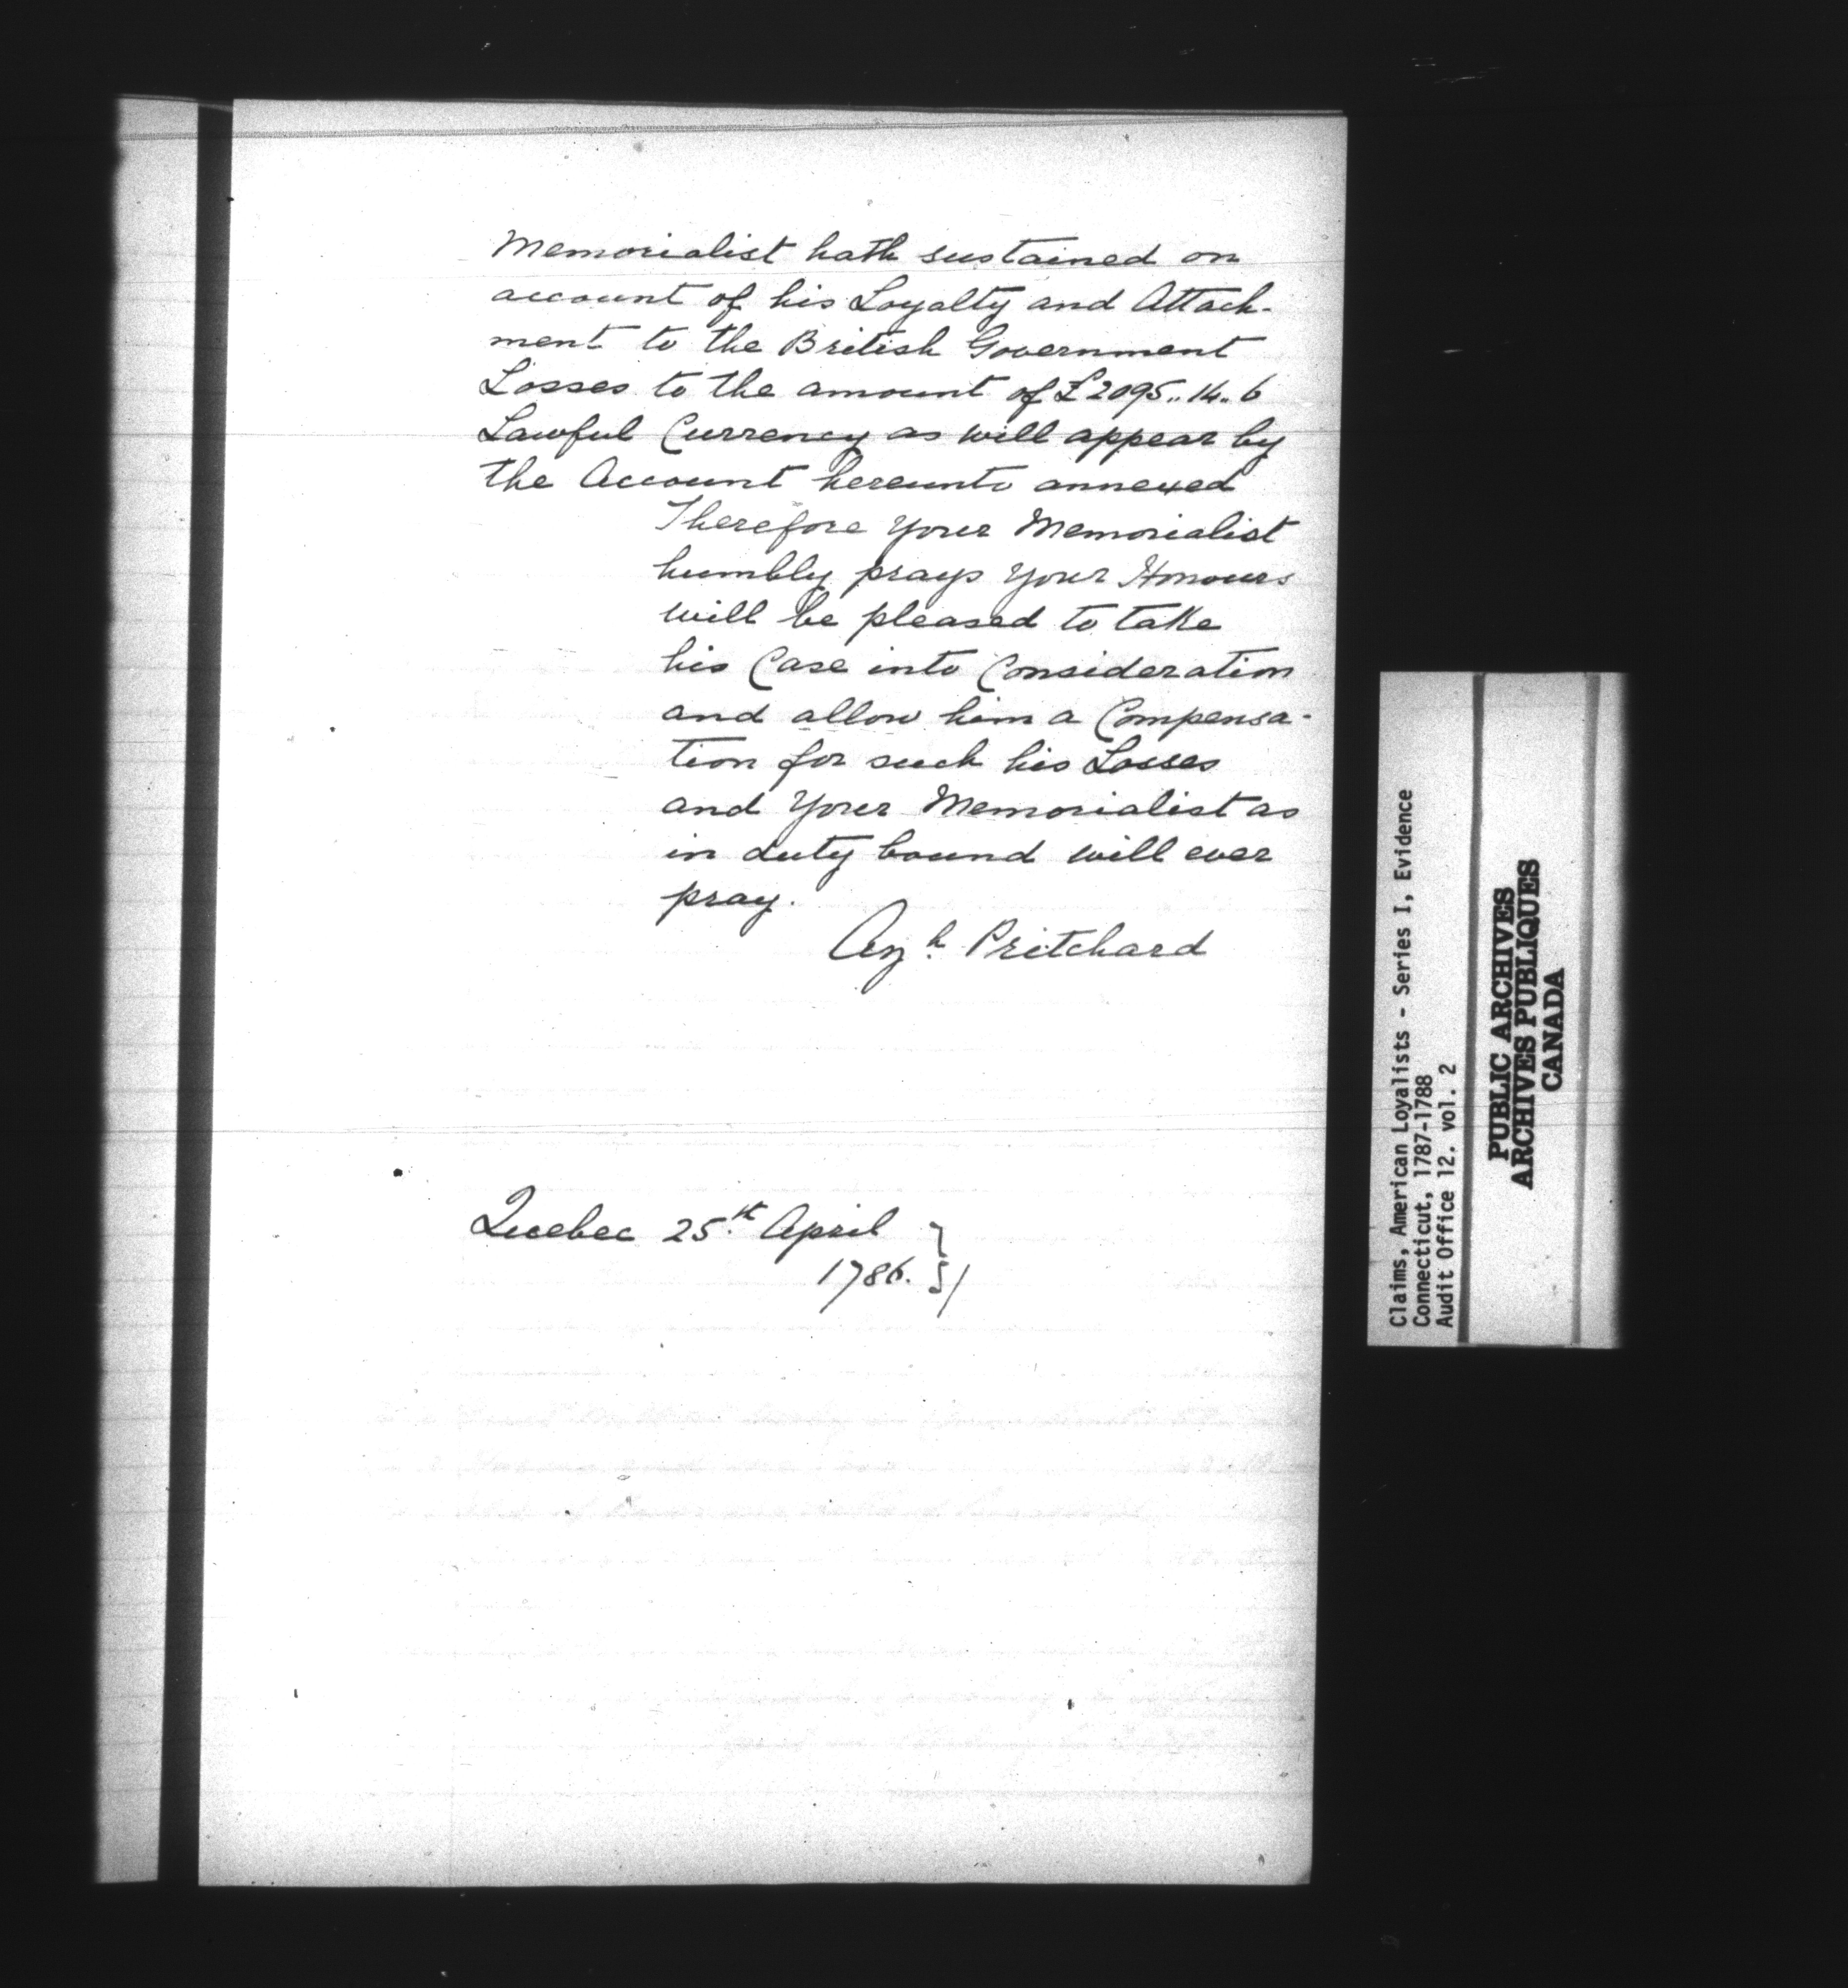 Memorialist hath sustained on
account of his Loyalty and Attach-
ment to the British Government
Losses to the amount of £2095.. 14.. 6
Lawful Currency as will appear by
the Account hereunto annexed
Therefore your Memorialist
humbly prays your Honours
will be pleased to take
his Case into Consideration
and allow him a Compensa-
tion for such his Losses
and your Memorialist as
in duty bound will ever
pray.
Azh. Pritchard
Quebec 25th April
1786.
Claims, American Loyalists - Series I, Evidence
Connecticut, 1787-1788
Audit Office 12. vol. 2
PUBLIC ARCHIVES
ARCHIVES PUBLIQUES
CANADA